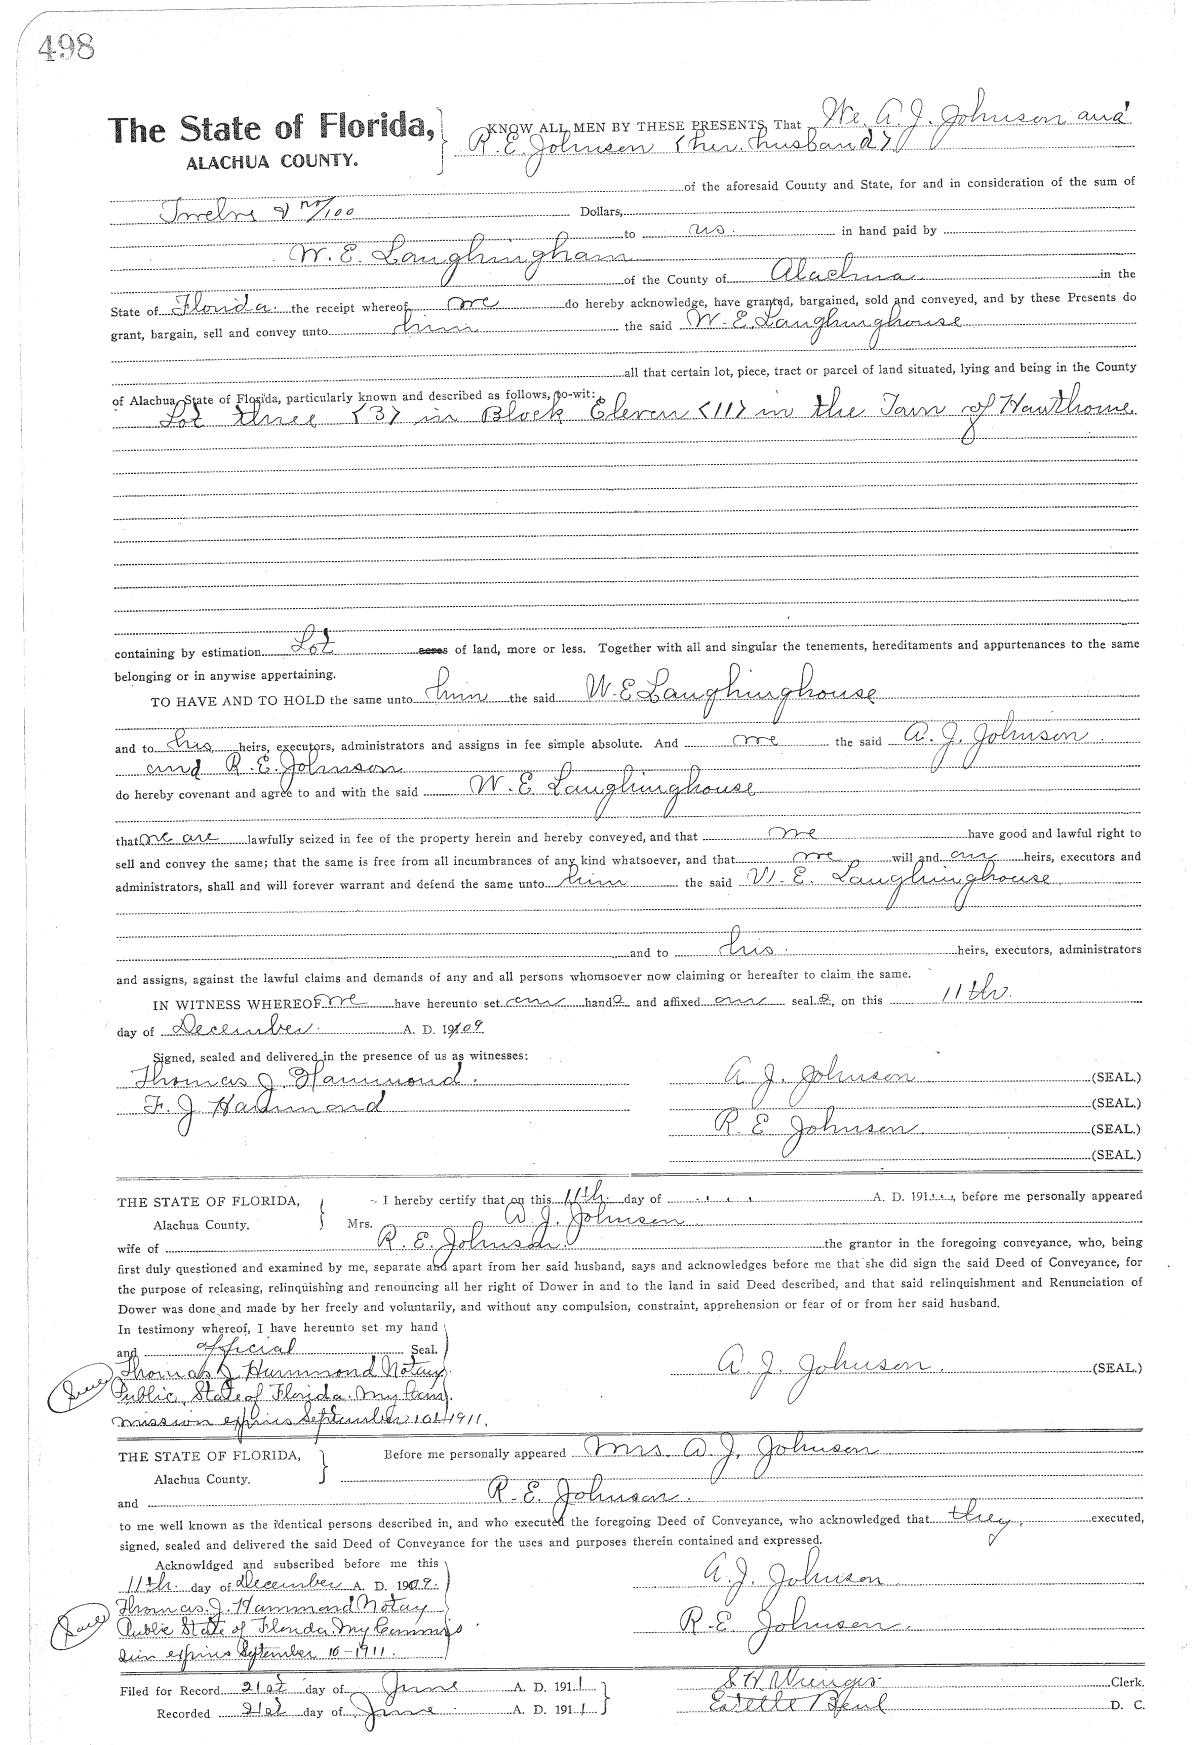 498
The State of Florida,
ALACHUA COUNTY.
KNOW ALL MEN BY THESE PRESENTS, That We, A. J. Johnson and
R. E. Johnson (her husband)
of the aforesaid County and State, for and in consideration of the sum of
Twelve & no/100 Dollars,
to us in hand paid by
W. E. Laughingham
of the County of Alachua in the
State of Florida the receipt whereof we do hereby acknowledge, have granted, bargained, sold and conveyed, and by these Presents do
grant, bargain, sell and convey unto him the said W. E. Laughinghouse
all that certain lot, piece, tract or parcel of land situated, lying and being in the County
of Alachua, State of Florida, particularly known and described as follows, to-wit:
Lot three (3) in Block Eleven (11) in the Town of Hawthorne.
containing by estimation Lot acres of land, more or less. Together with all and singular the tenements, hereditaments and appurtenances to the same
belonging or in anywise appertaining.
TO HAVE AND TO HOLD the same unto him the said W. E. Laughinghouse
and to his heirs, executors, administrators and assigns in fee simple absolute. And we the said A. J. Johnson
and R. E. Johnson
do hereby covenant and agree to and with the said W. E. Laughinghouse
that we are lawfully seized in fee of the property herein and hereby conveyed, and that we have good and lawful right to
sell and convey the same; that the same is free from all incumbrances of any kind whatsoever, and that we will and our heirs, executors and
administrators, shall and will forever warrant and defend the same unto him the said W. E. Laughinghouse
and to his heirs, executors, administrators
and assigns, against the lawful claims and demands of any and all persons whomsoever now claiming or hereafter to claim the same.
IN WITNESS WHEREOF we have hereunto set our hands and affixed our seals, on this 11th
day of December A. D. 1909
Signed, sealed and delivered in the presence of us as witnesses:
Thomas J. Hammond.
F. J. Hammond
A J. Johnson (SEAL.)
(SEAL.)
R. E Johnson (SEAL.)
(SEAL.)
THE STATE OF FLORIDA,
Alachua County.
I hereby certify that on this 11th day of .... A. D. 191..., before me personally appeared
Mrs. A. J. Johnson
wife of R. E. Johnson the grantor in the foregoing conveyance, who, being
first duly questioned and examined by me, separate and apart from her said husband, says and acknowledges before me that she did sign the said Deed of Conveyance, for
the purpose of releasing, relinquishing and renouncing all her right of Dower in and to the land in said Deed described, and that said relinquishment and Renunciation of
Dower was done and made by her freely and voluntarily, and without any compulsion, constraint, apprehension or fear of or from her said husband.
In testimony whereof, I have hereunto set my hand
and official Seal.
Thomas J. Hammond Notary
Public, State of Florida. My Com
mission expires September 10th 1911.
A J. Johnson. (SEAL)
THE STATE OF FLORIDA,
Alachua County.
Before me personally appeared Mrs. A. J. Johnson
and R. E. Johnson.
to me well known as the identical persons described in, and who executed the foregoing Deed of Conveyance, who acknowledged that they executed,
signed, sealed and delivered the said Deed of Conveyance for the uses and purposes therein contained and expressed.
Acknowldged and subscribed before me this
11th day of December A. D. 1909.
Thomas. J. Hammond Notary
Public State of Florida. My Commis
sion expires September 10-1911.
A. J. Johnson
R. E. Johnson.
Filed for Record 21st day of June A. D. 1911
Recorded 21st day of June A. D. 1911
Clerk.
Estelle D. C.